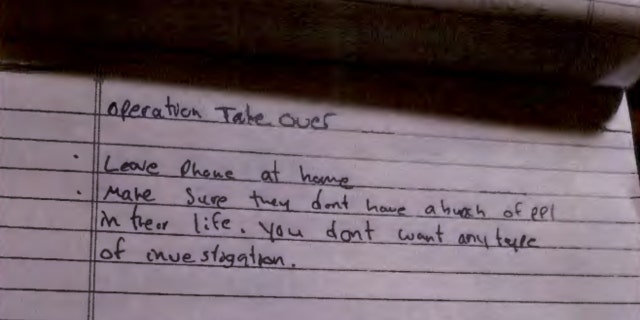 operation Take over
• Leave Phone at home
• Make Sure they dont have a bunch of ppl
in their life. You dont want any type
of investagation.